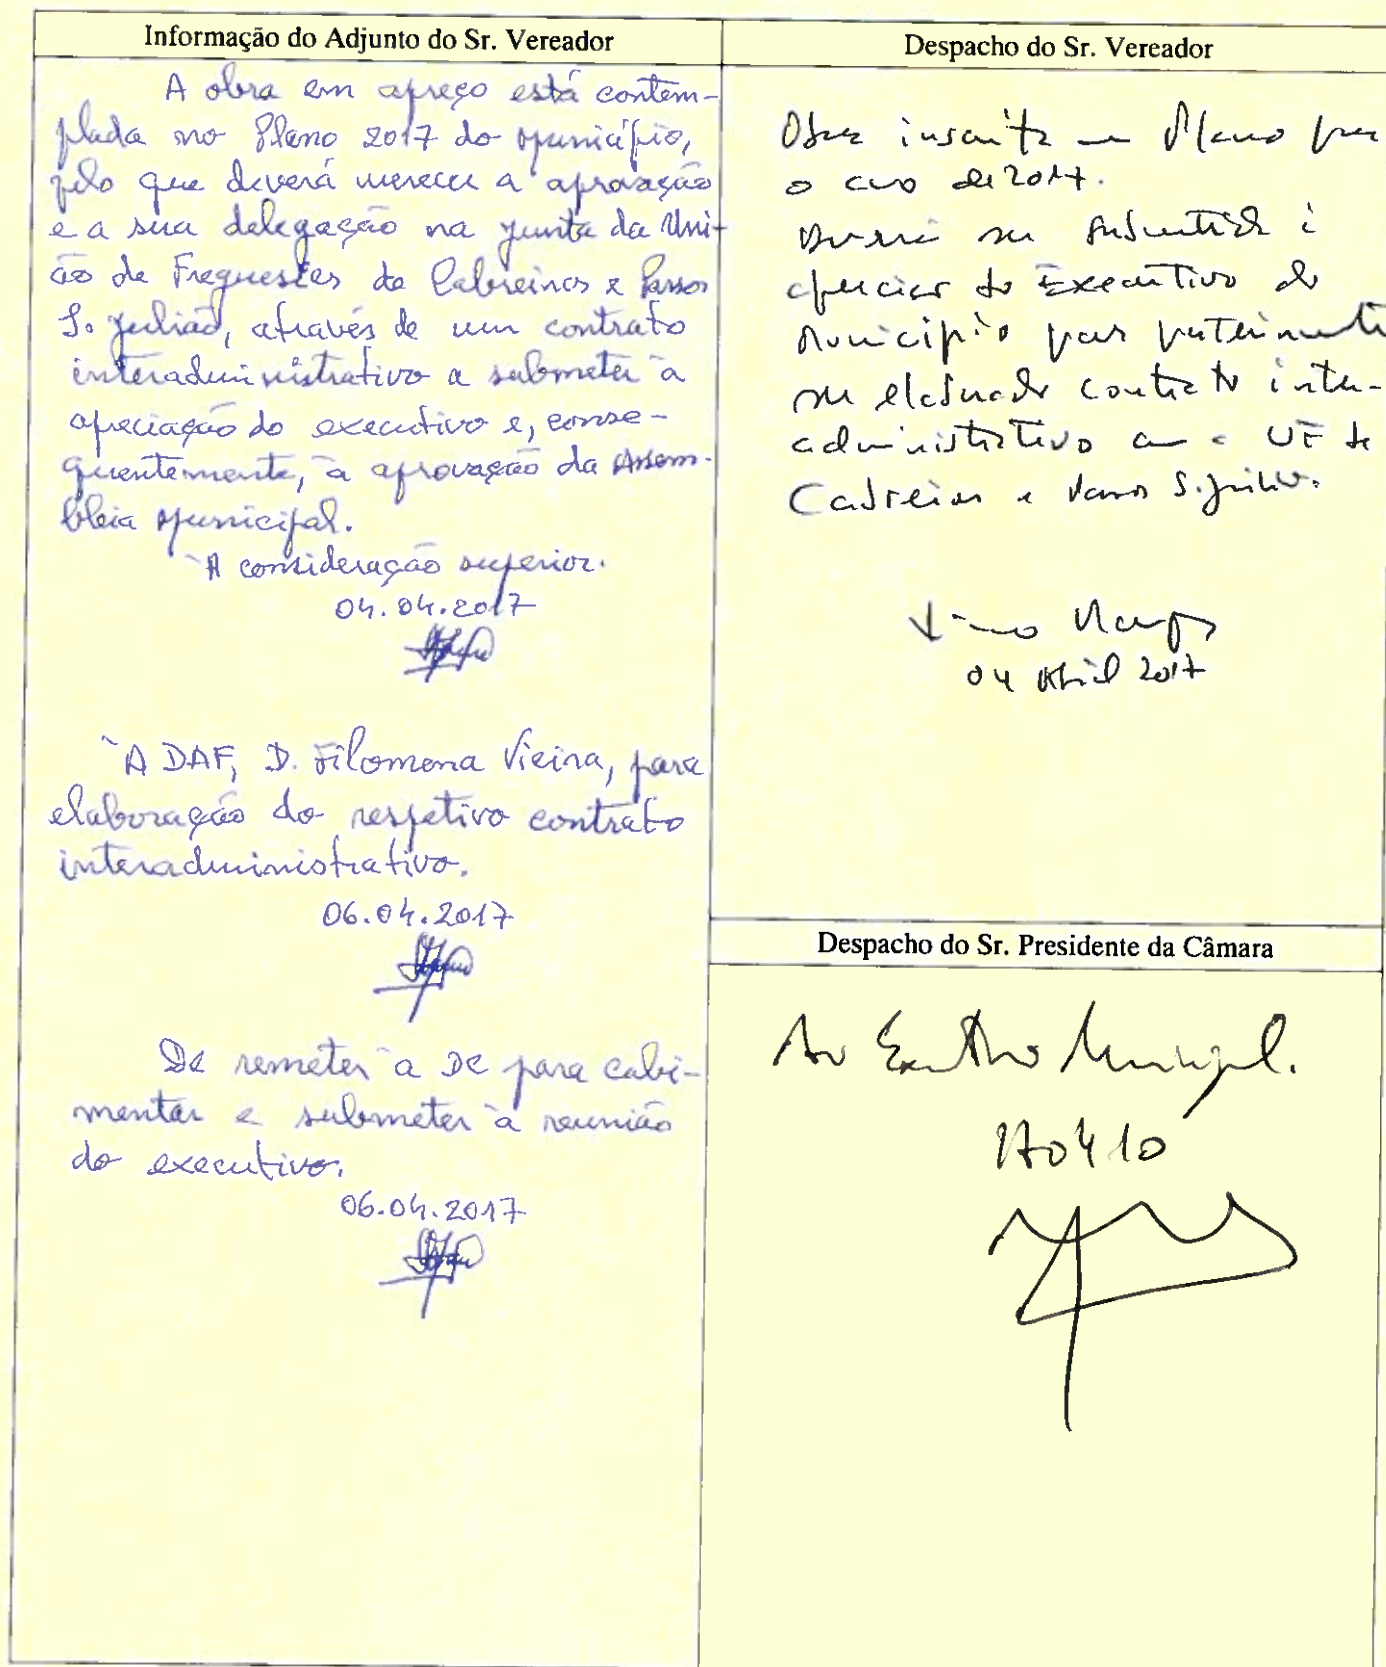 Informação do Adjunto do Sr. Vereador
A obra em apreço está contem-
plada no Plano 2017 do Município,
pelo que deverá merecer a aprovação
e a sua delegação na Junta da Uni-
ão de Freguesias de Cabreiros e Passos
S. Julião, através de um contrato
interadministrativo a submeter à
apreciação do executivo e, conse-
quentemente, à aprovação da Assem-
bleia Municipal.
À consideração superior.
04.04.2017
À DAF, D. Filomena Vieira, para
elaboração do respetivo contrato
interadministrativo.
06.04.2017
De remeter à DC para cabi-
mentar e submeter à reunião
do executivo.
06.04.2017
Despacho do Sr. Vereador
Obra inscrita no Plano para
o ano de 2017.
Deverá ser submetida à
apreciar do Executivo do
Município para
ser elaborado contrato inter-
administrativo com a UF de
Cabreiros e Passos S. Julião.
04 Abril 2017
Despacho do Sr. Presidente da Câmara
Ao Executivo Municipal.
170410